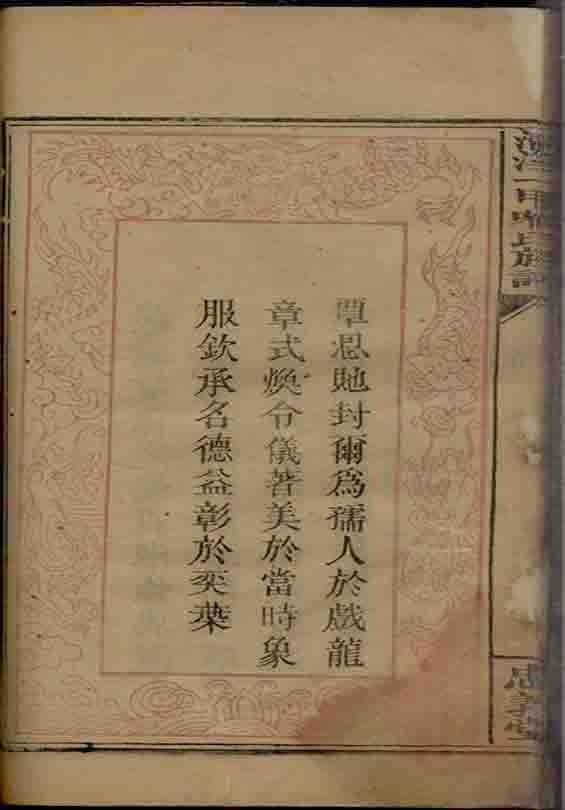 覃恩貤封爾爲孺人於戲龍
章式煥令儀著美於當時象
服欽承名德益彰於奕葉